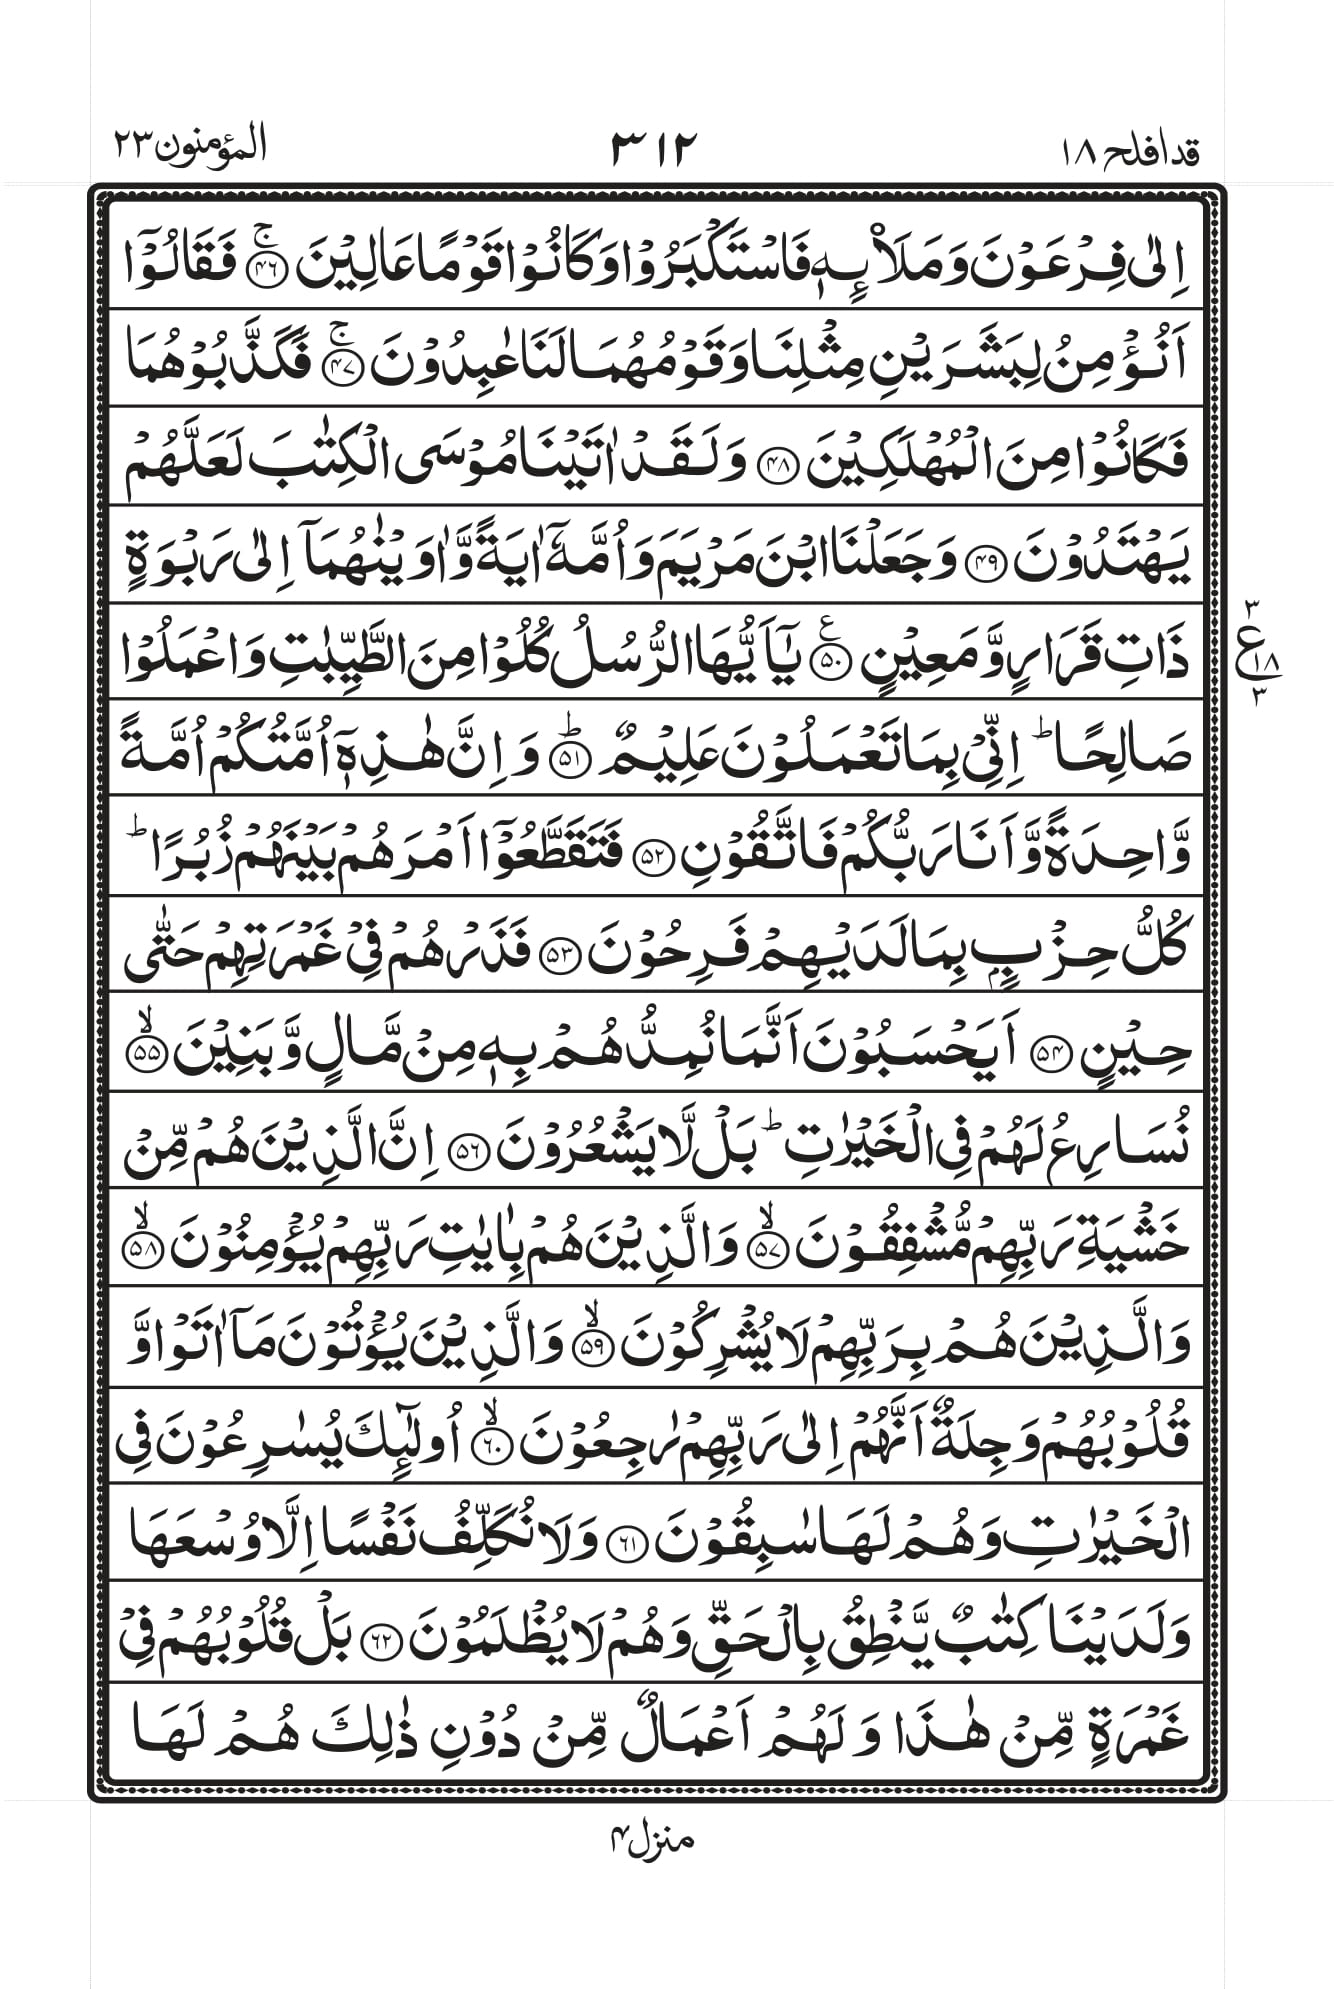 قد افلح ١٨
٣١٢
المؤمنون ٢٣
اِلٰى فِرْعَوْنَ وَمَلَا۟ئِهٖ فَاسْتَكْبَرُوْا وَكَانُوْا قَوْمًا عَالِيْنَ ۚ﴿۴۶﴾ فَقَالُوْۤا
اَنُؤْمِنُ لِبَشَرَيْنِ مِثْلِنَا وَقَوْمُهُمَا لَنَا عٰبِدُوْنَ ۚ﴿۴۷﴾ فَكَذَّبُوْهُمَا
فَكَانُوْا مِنَ الْمُهْلَكِيْنَ ﴿۴۸﴾ وَلَقَدْ اٰتَيْنَا مُوْسَى الْكِتٰبَ لَعَلَّهُمْ
يَهْتَدُوْنَ ﴿۴۹﴾ وَجَعَلْنَا ابْنَ مَرْيَمَ وَاُمَّهٗۤ اٰيَةً وَّاٰوَيْنٰهُمَاۤ اِلٰى رَبْوَةٍ
ذَاتِ قَرَارٍ وَّمَعِيْنٍ ﴿۵۰﴾ ع يٰۤاَيُّهَا الرُّسُلُ كُلُوْا مِنَ الطَّيِّبٰتِ وَاعْمَلُوْا
٣
ع
١٨
٣
صَالِحًا ؕ اِنِّيْ بِمَا تَعْمَلُوْنَ عَلِيْمٌ ؕ﴿۵۱﴾ وَاِنَّ هٰذِهٖۤ اُمَّتُكُمْ اُمَّةً
وَّاحِدَةً وَّاَنَا رَبُّكُمْ فَاتَّقُوْنِ ﴿۵۲﴾ فَتَقَطَّعُوْۤا اَمْرَهُمْ بَيْنَهُمْ زُبُرًا ؕ
كُلُّ حِزْبٍۭ بِمَا لَدَيْهِمْ فَرِحُوْنَ ﴿۵۳﴾ فَذَرْهُمْ فِيْ غَمْرَتِهِمْ حَتّٰى
حِيْنٍ ﴿۵۴﴾ اَيَحْسَبُوْنَ اَنَّمَا نُمِدُّهُمْ بِهٖ مِنْ مَّالٍ وَّبَنِيْنَ ۙ﴿۵۵﴾
نُسَارِعُ لَهُمْ فِي الْخَيْرٰتِ ؕ بَلْ لَّا يَشْعُرُوْنَ ﴿۵۶﴾ اِنَّ الَّذِيْنَ هُمْ مِّنْ
خَشْيَةِ رَبِّهِمْ مُّشْفِقُوْنَ ۙ﴿۵۷﴾ وَالَّذِيْنَ هُمْ بِاٰيٰتِ رَبِّهِمْ يُؤْمِنُوْنَ ۙ﴿۵۸﴾
وَالَّذِيْنَ هُمْ بِرَبِّهِمْ لَا يُشْرِكُوْنَ ۙ﴿۵۹﴾ وَالَّذِيْنَ يُؤْتُوْنَ مَاۤ اٰتَوْا وَّ
قُلُوْبُهُمْ وَجِلَةٌ اَنَّهُمْ اِلٰى رَبِّهِمْ رٰجِعُوْنَ ۙ﴿۶۰﴾ اُولٰٓئِكَ يُسٰرِعُوْنَ فِي
الْخَيْرٰتِ وَهُمْ لَهَا سٰبِقُوْنَ ﴿۶۱﴾ وَلَا نُكَلِّفُ نَفْسًا اِلَّا وُسْعَهَا
وَلَدَيْنَا كِتٰبٌ يَّنْطِقُ بِالْحَقِّ وَهُمْ لَا يُظْلَمُوْنَ ﴿۶۲﴾ بَلْ قُلُوْبُهُمْ فِيْ
غَمْرَةٍ مِّنْ هٰذَا وَلَهُمْ اَعْمَالٌ مِّنْ دُوْنِ ذٰلِكَ هُمْ لَهَا
منزل ۴